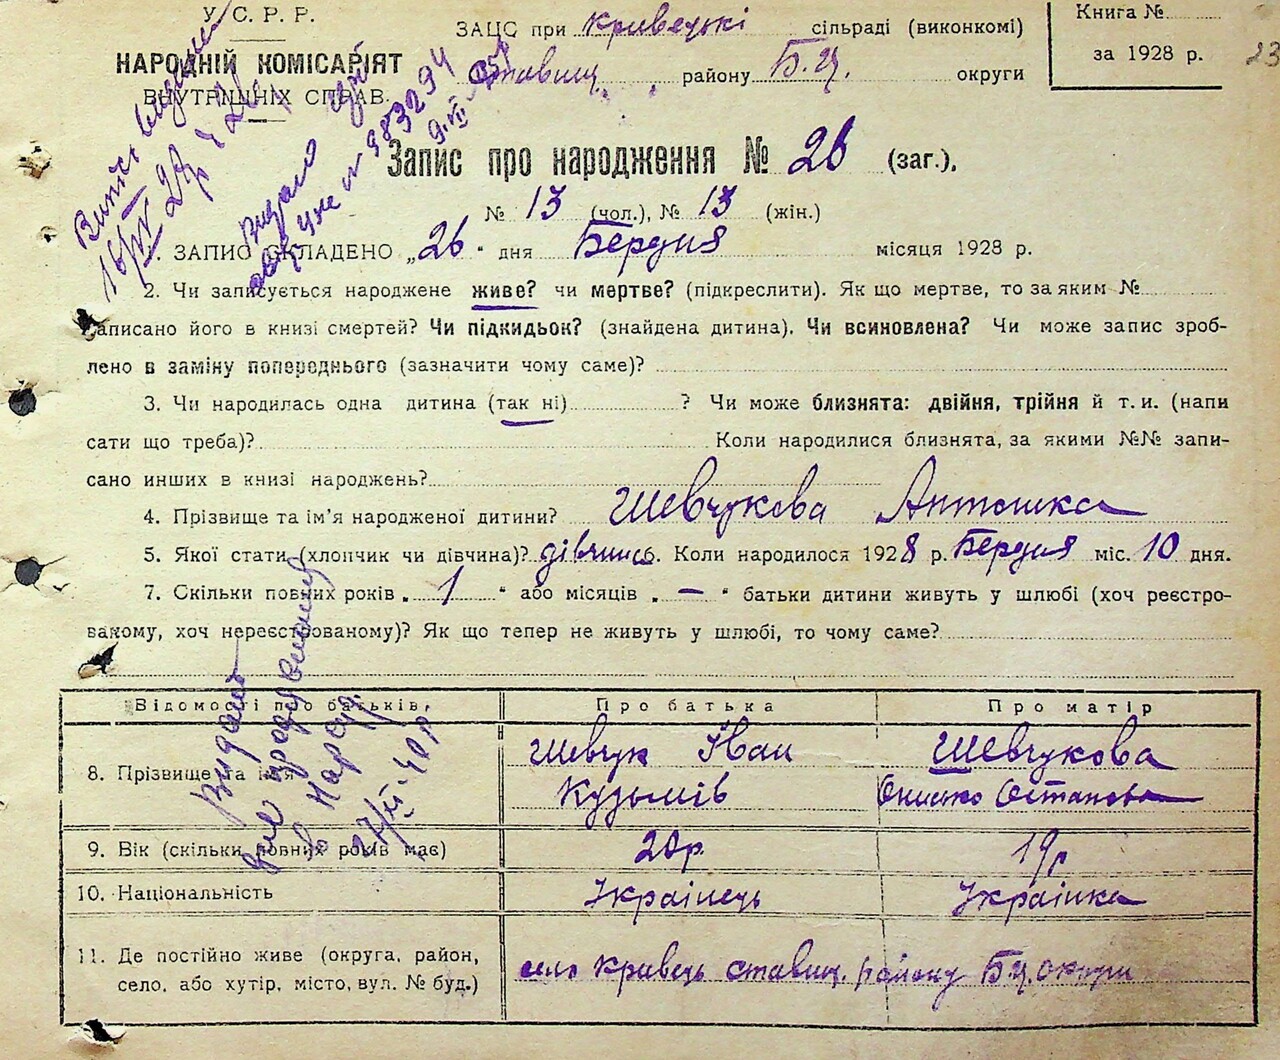 У.С.Р.Р.
НАРОДНІЙ КОМІСАРІЯТ
ВНУТРІШНІХ СПРАВ.
ЗАЦС при Кривецькі сільраді (виконкомі)
Ставищ. району Б.Ц. округи
Книга №
за 1928 р.
23
Запис про народження № 26 (заг.).
№ 13 (чол.), № 13 (жін.)
1. ЗАПИС СКЛАДЕНО „26“ дня Бердня місяця 1928 р.
2. Чи записується народжене живе? чи мертве? (підкреслити). Як що мертве, то за яким №
записано його в книзі смертей? Чи підкидьок? (знайдена дитина). Чи всиновлена? Чи може запис зроб-
лено в заміну попереднього (зазначити чому саме)?
3. Чи народилась одна дитина (так ні) ? Чи може близнята: двійня, трійня й т. и. (напи
сати що треба)? Коли народилися близнята, за якими №№ запи-
сано инших в книзі народжень?
4. Прізвище та ім'я народженої дитини? Шевчукова Антонка
5. Якої стати (хлопчик чи дівчина)? дівчина. Коли народилося 1928 р. Бердня міс. 10 дня.
7. Скільки повних років „ 1 “ або місяців „ — “ батьки дитини живуть у шлюбі (хоч реєстро-
ваному, хоч нереєстрованому)? Як що тепер не живуть у шлюбі, то чому саме?
Відомості про батьків, Про батька Про матір
8. Прізвище та імя Шевчук Іван Кузьмів Шевчукова Онисько Остапова
9. Вік (скільки повних років має) 20 р. 19 р
10. Національність Українець Українка
11. Де постійно живе (округа, район, село, або хутір, місто, вул. № буд.) село Кривець ставищ. району Б.Ц. округи
Видано
27/XI-40 р